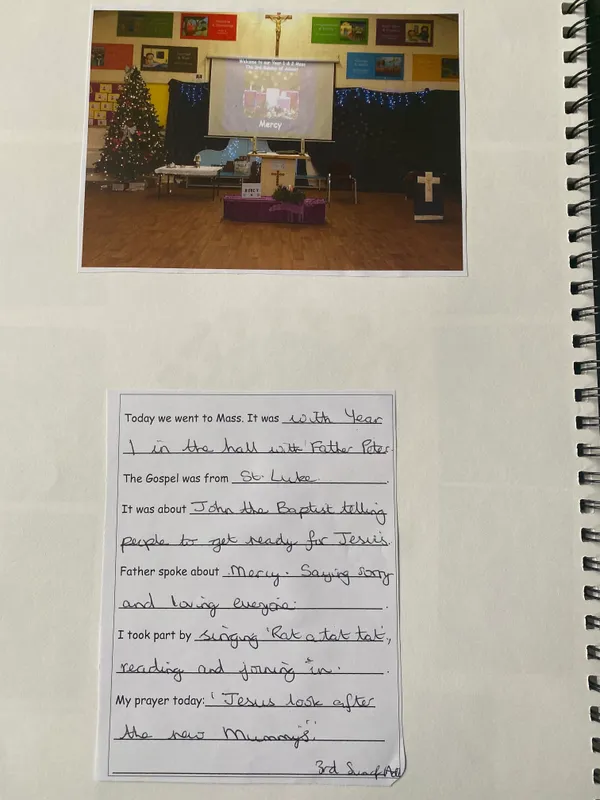 Welcome to our Year 1 & 2 Mass
The 3rd Sunday of Advent
Mercy
Today we went to Mass. It was with Year
1 in the hall with Father Peter.
The Gospel was from St. Luke.
It was about John the Baptist telling
people to get ready for Jesus.
Father spoke about Mercy. Saying sorry
and loving everyone.
I took part by singing 'Rat a tat tat',
reading and joining in.
My prayer today: 'Jesus look after
the new Mummy's'.
3rd